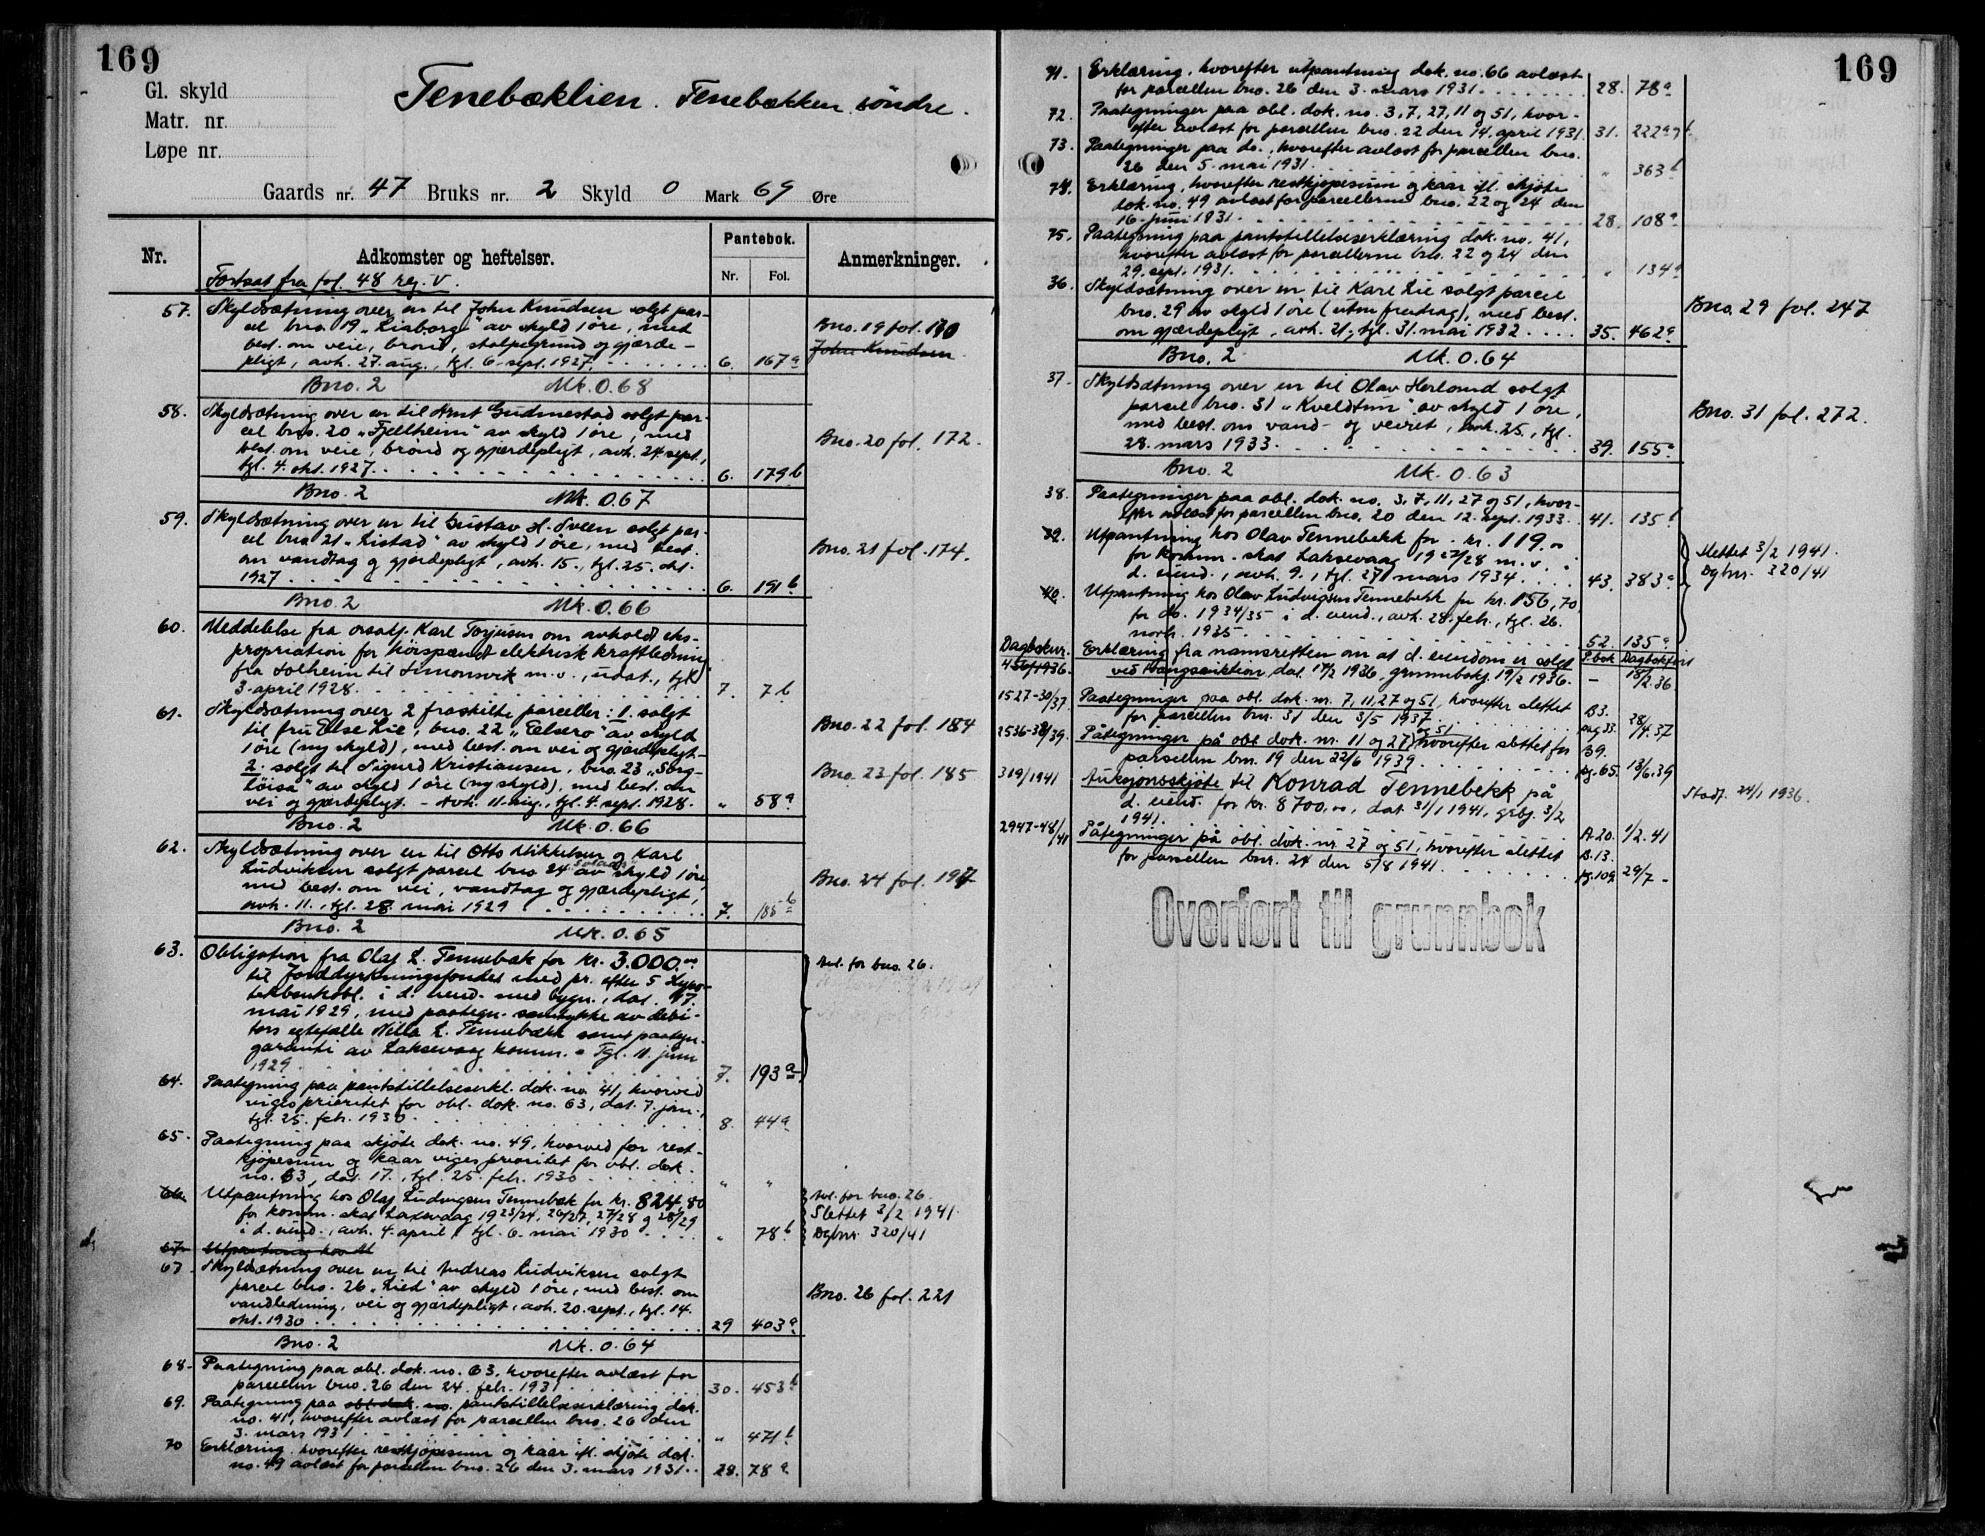 169
Gl. skyld
Matr. nr.
Løpe nr.
Tenebæklien. Tenebækken søndre.
Gaards nr. 47 Bruks nr. 2 Skyld 0 Mark 69 Øre
Nr. Adkomster og heftelser. Pantebok. Nr. Fol. Anmerkninger.
Fortsat fra fol. 48 reg. V.
57. Skyldsætning over en til John Knudsen solgt par-
cel bno. 19 "Liaborg" av skyld 1 øre, med
best. om veie, brønd, stolpegrund og gjærde-
pligt, avh. 27. aug., tgl. 6. sept. 1927. 6. 167a
Bno. 19 fol. 170
John Knudsen
Bno. 2 Mk. 0.68
58. Skyldsætning over en til Arnt Gudmestad solgt par-
cel bno. 20 "Fjellheim" av skyld 1 øre, med
best. om veie, brønd og gjærdepligt, avh. 24. sept.,
tgl. 4. okt. 1927. 6. 179b
Bno. 20 fol. 172.
Bno. 2 Mk. 0.67
59. Skyldsætning over en til Gustav H. Sveen solgt par-
cel bno. 21 "Listad" av skyld 1 øre, med best.
om vandtag og gjærdepligt, avh. 15., tgl. 25. okt.
1927 6. 191b
Bno. 21 fol. 174.
Bno. 2 Mk. 0.66
60. Meddelelse fra orsakf. Karl Torjusen om avholdt eks-
propriation for høispændt elektrisk kraftledning
fra Solheim til Simonsvik m.v., udat., tgl.
3. april 1928. 7. 7b
61. Skyldsætning over 2 fraskilte parceller: 1. solgt
til fru Else Lie, bno. 22 "Elsero" av skyld
1 øre (ny skyld), med best. om vei og gjærdepligt.-
2. solgt til Sigurd Kristiansen, bno. 23 "Sorg-
løisa" av skyld 1 øre (ny skyld), med best. om
vei og gjærdepligt. - Avh. 11. aug., tgl. 4. sept. 1928. " 58a
Bno. 22 fol. 184
Bno. 23 fol. 185
Bno. 2 Mk. 0.66
62. Skyldsætning over en til Otto Mikkelsen og Karl
Ludviksen solgt parcel bno 24 av skyld 1 øre,
med best. om vei, vandtag og gjærdepligt,
avh. 11., tgl. 28. mai 1929 7. 185b
Bno. 24 fol. 197
Bno. 2 Mk. 0.65
63. Obligation fra Olaf L. Tennebæk for kr. 3.000.00
til Jorddyrkningsfondet med pr. efter 5 Hypo-
tekbankobl. i d. eiend. med bygn., dat. 17.
mai 1929, med paategn. samtykke av debi-
tors egtefælle Nilla L. Tennebækk samt paategn.
garanti av Laksevaag komm. - Tgl. 11. juni
1929 7. 193a
Avl. for bno. 26.
64. Paategning paa pantstillelseserkl. dok. no. 41, hvorved
viges prioritet for obl. dok. no. 63, dat. 7. jan.,
tgl. 25. febr. 1930. 8. 44a
65. Paategning paa skjøte dok. no. 49, hvorved for rest-
kjøpesum og kaar viges prioritet for obl. dok.
no. 63, dat. 17., tgl. 25. febr. 1930 " "
Utpantning hos Olaf Ludvigsen Tennebæk for kr. 824,80
for komm. skat Laksevaag 1923/24, 26/27, 27/28 og 28/29
i d. eiend., avh. 4. april, tgl. 6. mai 1930 " 78b
Avl. for bno. 26.
Slettet 3/2 1941.
Dgbnr. 320/41
67. Utpantning hos
67 Skyldsætning over en til Andreas Ludviksen solgt
parcel bno. 26 "Lied" av skyld 1 øre, med best. om
vandledning, vei og gjærdepligt, avh. 20. sept., tgl. 14.
okt. 1930 29 403a
Bno. 26 fol. 221
Bno. 2 Mk. 0.64
68. Paategning paa obl. dok. no. 63, hvorefter avlæst for
parcellen bno. 26 den 24. febr. 1931 30. 453b
69. Paategning paa obl. dok. no. pantstillelseserklæring dok.
no. 41, hvorefter avlæst for parcellen bno. 26 den
3. mars 1931 " 471b
70 Erklæring, hvorefter restkjøpesum og kaar ifl. skjøte dok.
no. 49 avlæst for parcellen bno. 26 den 3. mars 1931. 28. 78a
169
71. Erklæring, hvorefter utpantning dok. no. 66 avlæst
for parcellen bno. 26 den 3. mars 1931. 28. 78a
72. Paategninger paa obl. dok. no. 3, 7, 27, 11 og 51, hvor-
efter avlæst for parcellen bno. 22 den 14. april 1931. 31. 222a
73. Paategninger paa do., hvorefter avlæst for parcellen bno.
26 den 5. mai 1931. " 363b
74. Erklæring, hvorefter restkjøpesum og kaar ifl. skjøte
dok. no. 49 avlæst for parcellerne bno. 22 og 24 den
16. juni 1931. 28. 108a
75. Paategning paa pantstillelseserklæring dok. no. 41,
hvorefter avlæst for parcellerne bno. 22 og 24 den
29. sept. 1931. " 134a
36. Skyldsætning over en til Karl Lie solgt parcel
bno. 29 av skyld 1 øre (uten fradrag), med best.
om gjærdepligt, avh. 21., tgl. 31. mai 1932. 35. 462a
Bno. 29 fol. 247
Bno. 2 Mk. 0.64
37. Skyldsætning over en til Olav Herlaund solgt
parcel bno. 31 "Kveldtun" av skyld 1 øre,
med best. om vand- og veiret, avh. 25., tgl.
28. mars 1933. 39. 155a
Bno. 31 fol. 272.
Bno. 2 Mk. 0.63
38. Paategninger paa obl. dok. no. 3, 7, 11, 27 og 51, hvor-
efter avlæst for parcellen bno. 20 den 12. sept. 1933. 41. 135b
39. Utpantning hos Olav Tennebekk for kr. 119.00
for komm. skat Laksevaag 1927/28 m.v. i
d. eiend., avh. 9., tgl. 27. mars 1934. 43. 383a
Slettet 3/2 1941.
Dgbnr. 320/41
40. Utpantning hos Olav Ludvigsen Tennebekk for kr. 156,70
for do. 1934/35 i d. eiend., avh. 28. febr., tgl. 26.
1935. 52. 135a
Dagboknr. Erklæring fra namsretten om at d. eiendom er solgt P.bok Dagbokført
456/1936. ved tvangsauktion dat. 17/2 1936, grunnboksf. 19/2 1936. - 18/2.36
1527-30/37 Paategninger paa obl. dok. nr. 7, 11, 27 og 51, hvorefter slettet
for parcellen bnr. 31 den 3/5 1937. B3. pag 33. 28/4.37
2536-38/39. Påtegninger på obl. dok. nr. 11 og 27 og 51 hvorefter slettet for
parsellen bnr. 19 den 22/6 1939. B9. pg. 65. 13/6.39
319/1941 Auksjonsskjøte til Konrad Tennebekk på
d. eiend. for kr. 8700,00, dat. 31/1 1941, grbj. 3/2
1941. A.20. 1/2.41
Stadf. 24/1 1936.
2947-48/41 Påtegninger på obl. dok. nr. 27 og 51, hvorefter slettet
for parsellen bnr. 24 den 5/8 1941. B.13. pg. 109 29/7 -
Overført til grunnbok